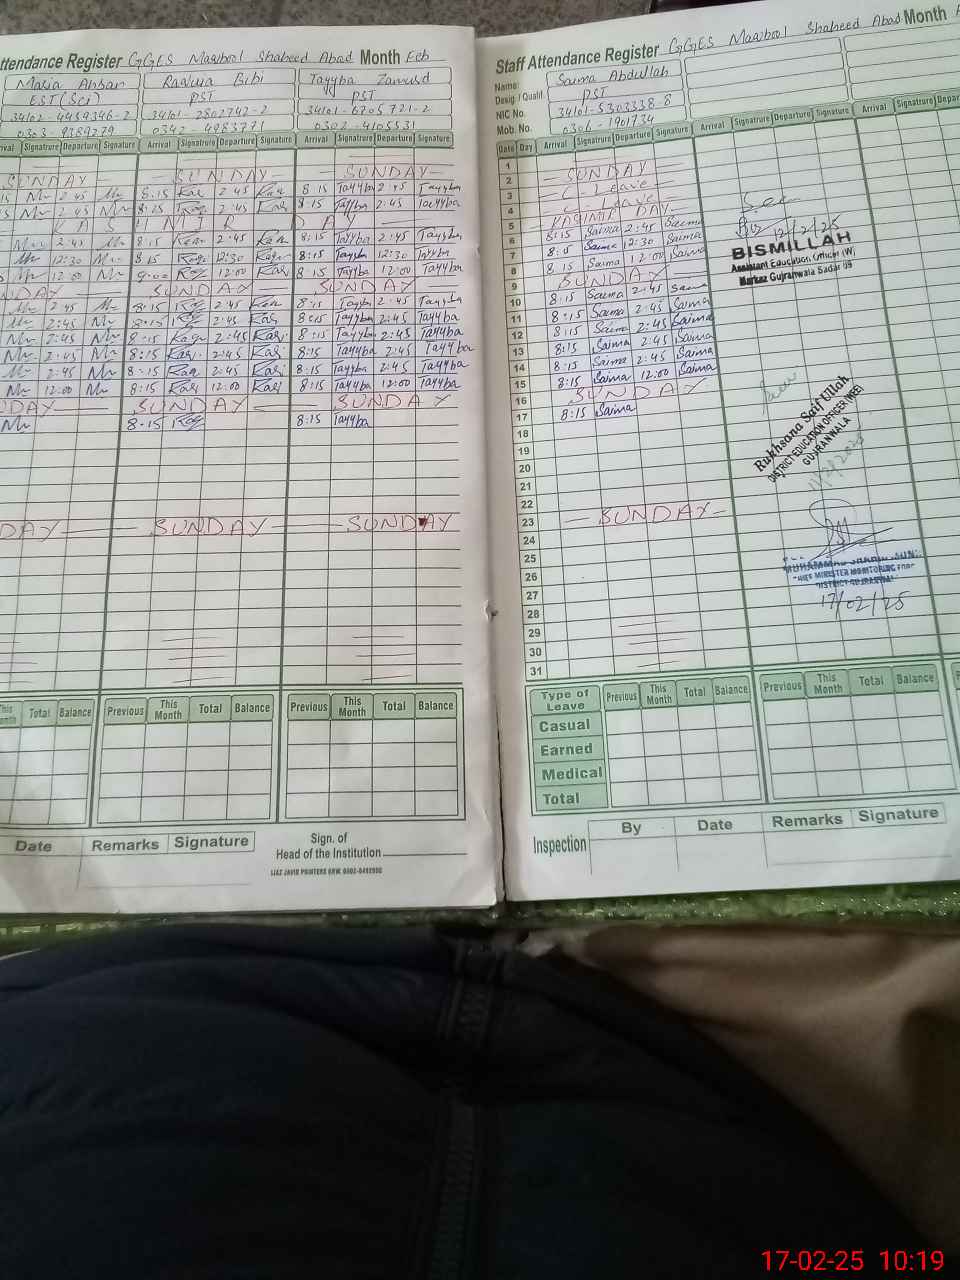 Attendance Register GGES Maqbool Shaheed Abad Month Feb
Maria Akbar Raqwa Bibi Tayyba Zamurd
EST (Sci) PST PST
34102-4459346-2 34102-2802742-2 34101-6705721-2
0303-9389279 0342-4983771 0302-4105531
Arrival Signature Departure Signature Arrival Signature Departure Signature Arrival Signature Departure Signature
SUNDAY SUNDAY SUNDAY
2:45 8:15 2:45 8:15 Tayyba 2:45 Tayyba
2:45 8:15 2:45 8:15 Tayyba 2:45 Tayyba
KASHMIR DAY
2:45 8:15 2:45 8:15 Tayyba 2:45 Tayyba
12:30 8:15 12:30 8:15 Tayyba 12:30 Tayyba
12:00 9:00 12:00 8:15 Tayyba 12:00 Tayyba
SUNDAY SUNDAY SUNDAY
2:45 8:15 2:45 8:15 Tayyba 2:45 Tayyba
2:45 8:15 2:45 8:15 Tayyba 2:45 Tayyba
2:45 8:15 2:45 8:15 Tayyba 2:45 Tayyba
2:45 8:15 2:45 8:15 Tayyba 2:45 Tayyba
2:45 8:15 2:45 8:15 Tayyba 2:45 Tayyba
12:00 8:15 12:00 8:15 Tayyba 12:00 Tayyba
SUNDAY SUNDAY SUNDAY
8:15 8:15 Tayyba
SUNDAY SUNDAY SUNDAY
This Month Total Balance Previous This Month Total Balance Previous This Month Total Balance
Date Remarks Signature
Sign. of
Head of the Institution
Staff Attendance Register GGES Maqbool Shaheed Abad Month
Name: Saima Abdullah
Desig / Qualif. PST
NIC No. 34101-5303338-8
Mob. No. 0306-1901734
Date Day Arrival Signature Departure Signature Arrival Signature Departure Signature Arrival Signature Departure
1
2 SUNDAY
3 C. Leave
4 C. Leave
5 KASHMIR DAY
6 8:15 Saima 2:45 Saima
7 8:15 Saima 12:30 Saima
8 8:15 Saima 12:00 Saima
9 SUNDAY
10 8:15 Saima 2:45 Saima
11 8:15 Saima 2:45 Saima
12 8:15 Saima 2:45 Saima
13 8:15 Saima 2:45 Saima
14 8:15 Saima 2:45 Saima
15 8:15 Saima 12:00 Saima
16 SUNDAY
17 8:15 Saima
18
19
20
21
22
23 SUNDAY
24
25
26
27
28
29
30
31
Seen
12/2/25
BISMILLAH
Assistant Education Officer (W)
Markaz Gujranwala Sadar 09
Rukhsana Saif Ullah
DISTRICT EDUCATION OFFICER (WEE)
GUJRANWALA
MUHAMMAD
CHIEF MINISTER MONITORING FORCE
DISTRICT GUJRANWALA
17/02/25
Type of Leave Previous This Month Total Balance Previous This Month Total Balance
Casual
Earned
Medical
Total
Inspection By Date Remarks Signature
17-02-25 10:19